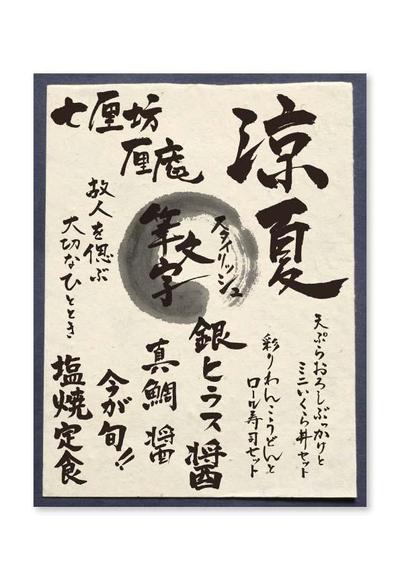 涼夏
天ぷらおろしぶっかけと
ミニいくら丼セット
彩りわんこうどんと
ロール寿司セット
スタイリッシュ
筆文字
銀ヒラス醤
真鯛醤
今が旬!!
七厘坊
厘庵
故人を偲ぶ
大切なひととき
塩焼定食